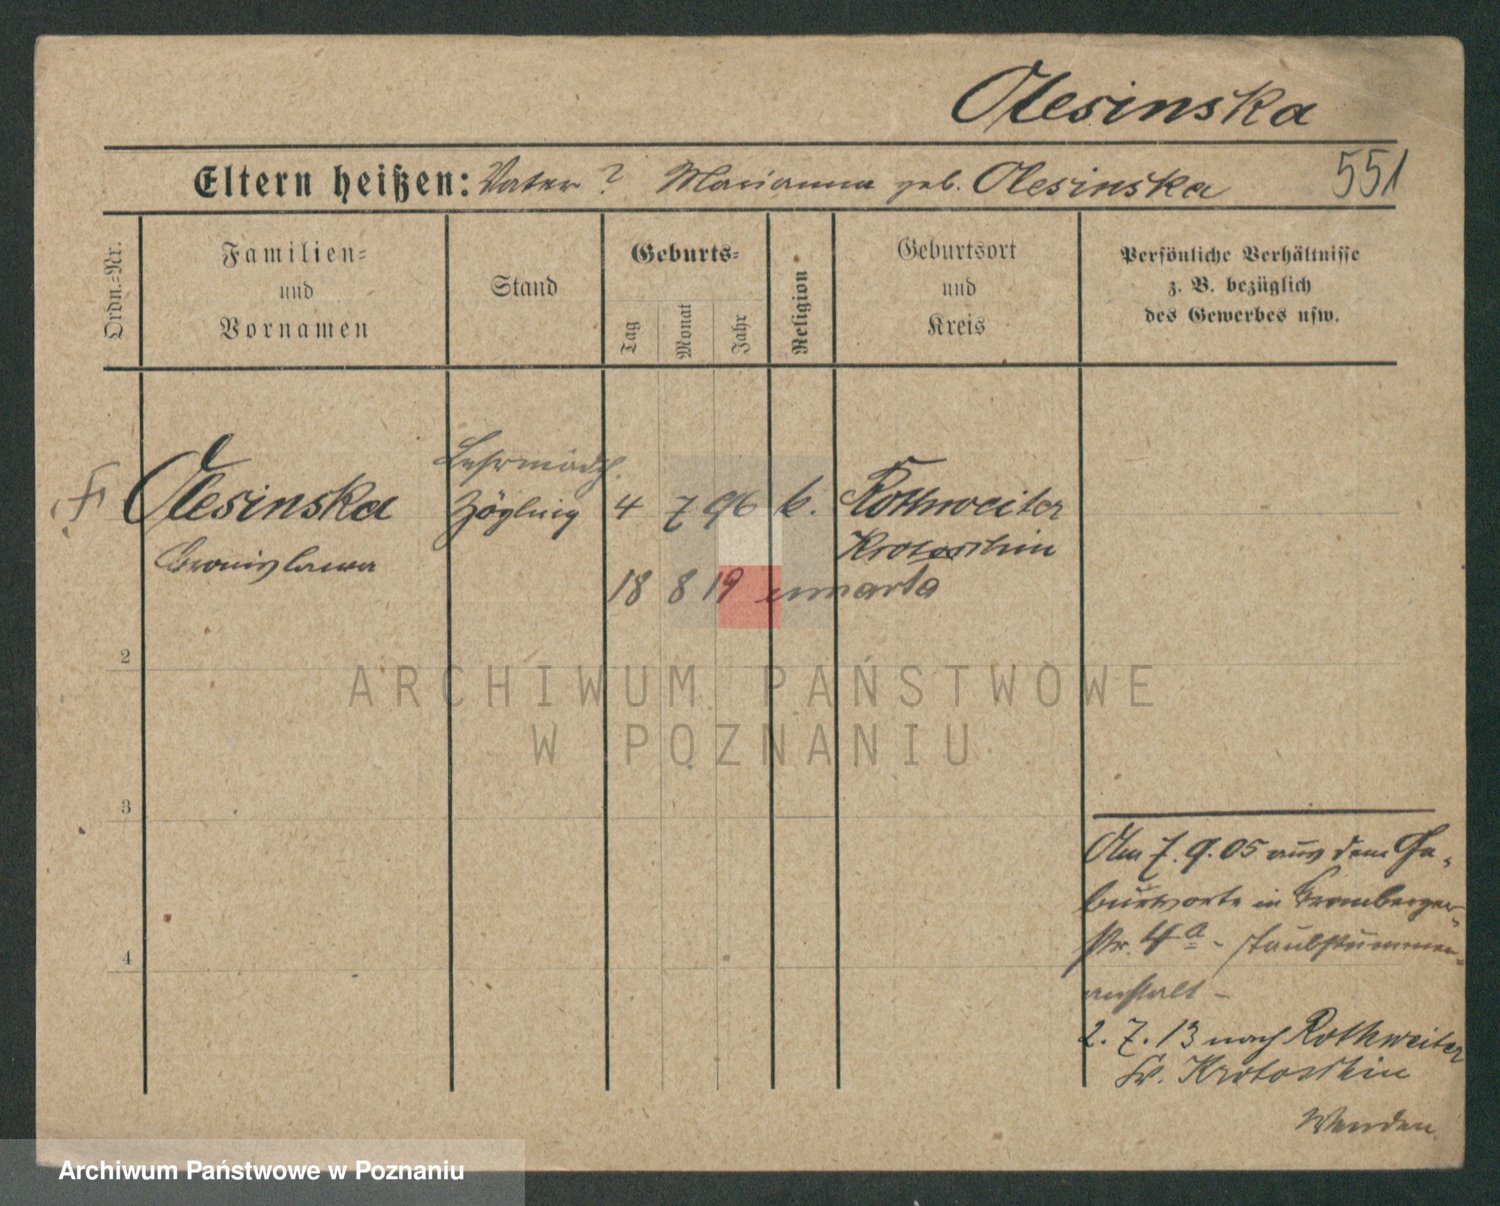 Olesinska
Eltern heißen: Vater ? Marianna geb. Olesinska
551
Ordn.=Nr.
Familien=
und
Vornamen
Stand
Geburts=
Tag
Monat
Jahr
Religion
Geburtsort
und
Kreis
Persönliche Verhältnisse
z. B. bezüglich
des Gewerbes usw.
Lehrmädch.
Olesinska Zögling 4 7 96 k. Rothweiler
Bronislawa
Krotoschin
18 8 19 umarła
2
3
4
Am 7. 9. 05 aus dem Ge-
burtsorte in Bromberger-
str. 4a - Taubstummen-
anstalt -
2. 7. 13 nach Rothweiler
Kr. Krotoschin
Wenden.
ARCHIWUM PAŃSTWOWE
W POZNANIU
Archiwum Państwowe w Poznaniu